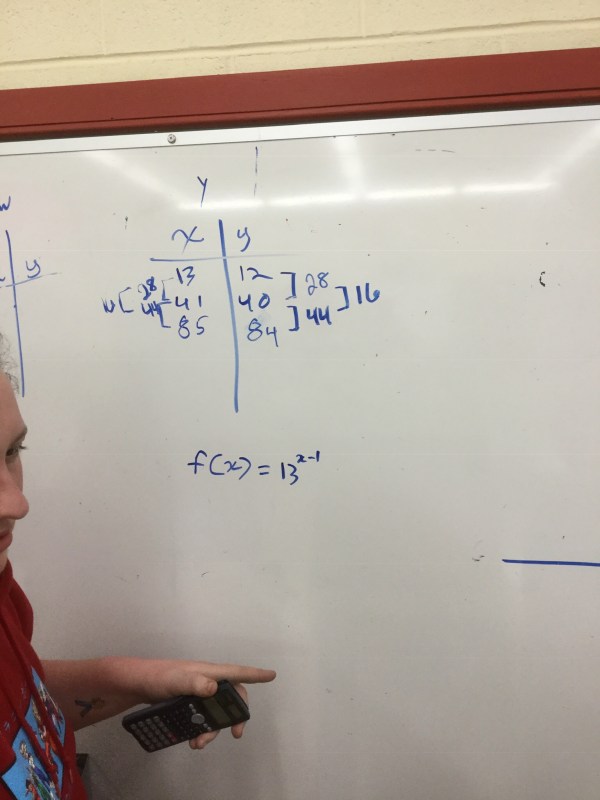 y
x y
y
28 13 12 28
44 41 40 44 16
85 84
f(x) = 13^x-1